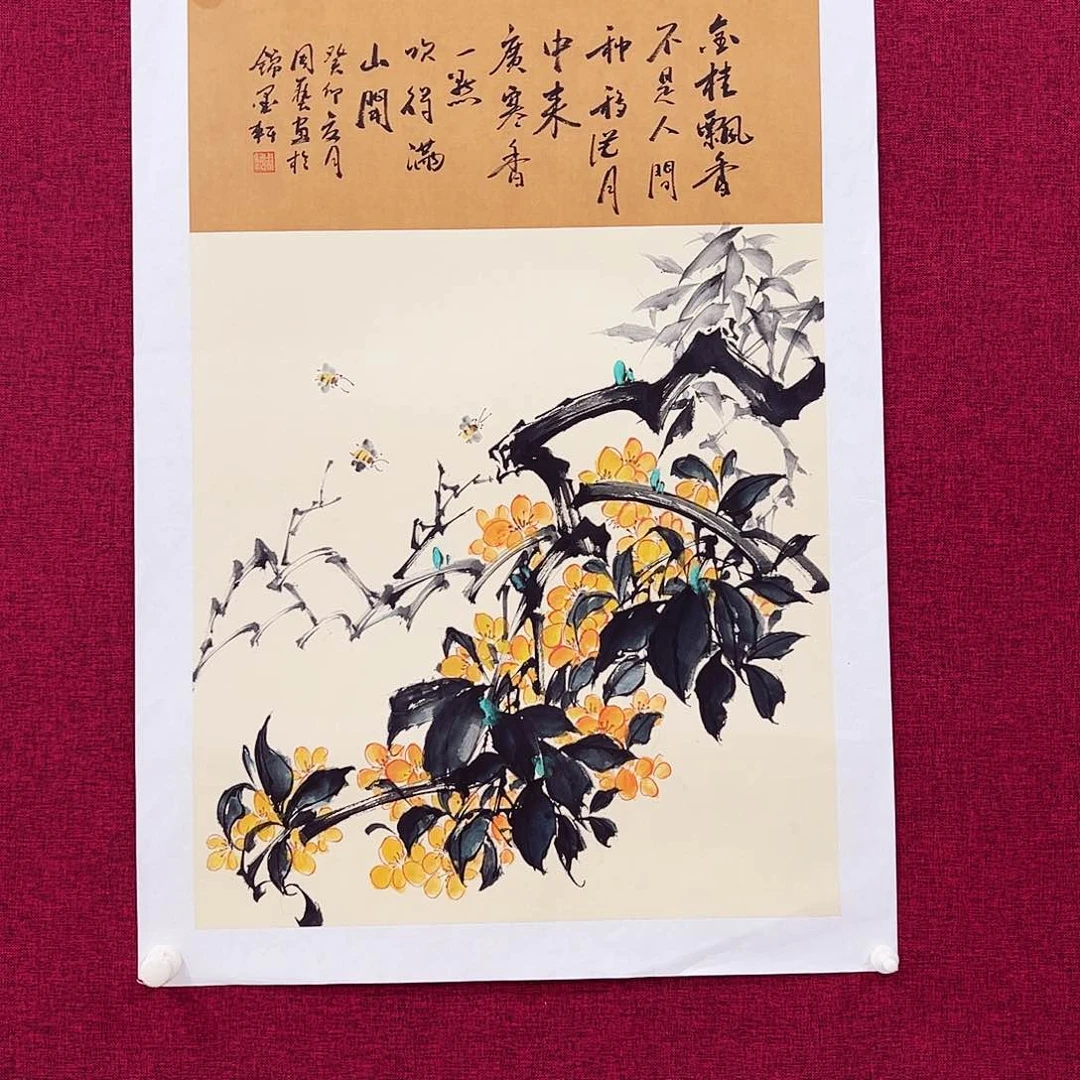 金桂飄香
不是人間
种移從月
中来
廣寒香
一點
吹得滿
山開
癸卯京月
周藝畫於
錦墨軒